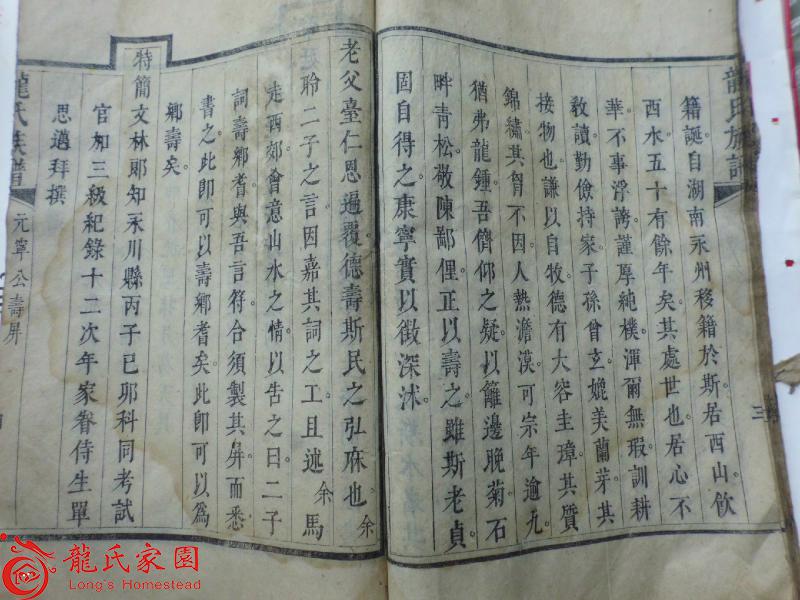 龍氏族譜
籍誕自湖南永州移籍於斯居西山飲
西水五十有餘年矣其處世也居心不
華不事浮誇謹厚純樸渾爾無瑕訓耕
教讀勤儉持家子孫曾玄媲美蘭芽其
接物也謙以自牧德有大容圭璋其質
錦繡其胷不因人熱澹漠可宗年逾九
猶弗龍鍾吾儕仰之疑以籬邊晚菊石
畔青松敬陳鄙俚正以壽之雖斯老貞
固自得之康寧實以徵深沐
三
老父臺仁恩遍覆德壽斯民之弘庥也余
聆二子之言因嘉其詞之工且述余馬
走西郊會意山水之情以告之曰二子
詞壽鄉耆與吾言符合須製其屏而悉
書之此卽可以壽鄉耆矣此卽可以為
鄉壽矣
特簡文林郎知永川縣丙子己卯科同考試
官加三級紀錄十二次年家眷侍生單
思邁拜撰
龍氏族譜
元寧公壽屏
龍氏家園
Long's Homestead